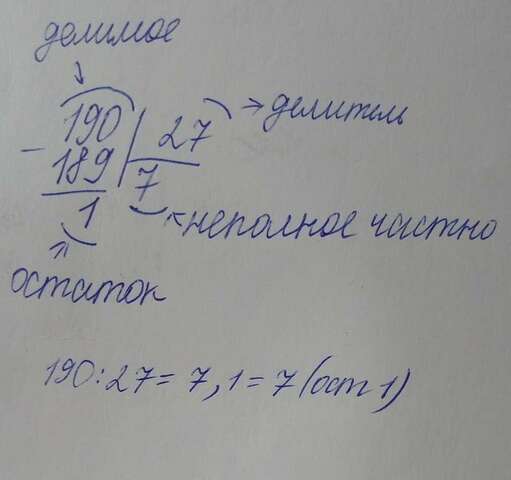 делимое
190 27 делитель
- 189 7
1 неполное частно
остаток
190:27=7,1=7(ост 1)